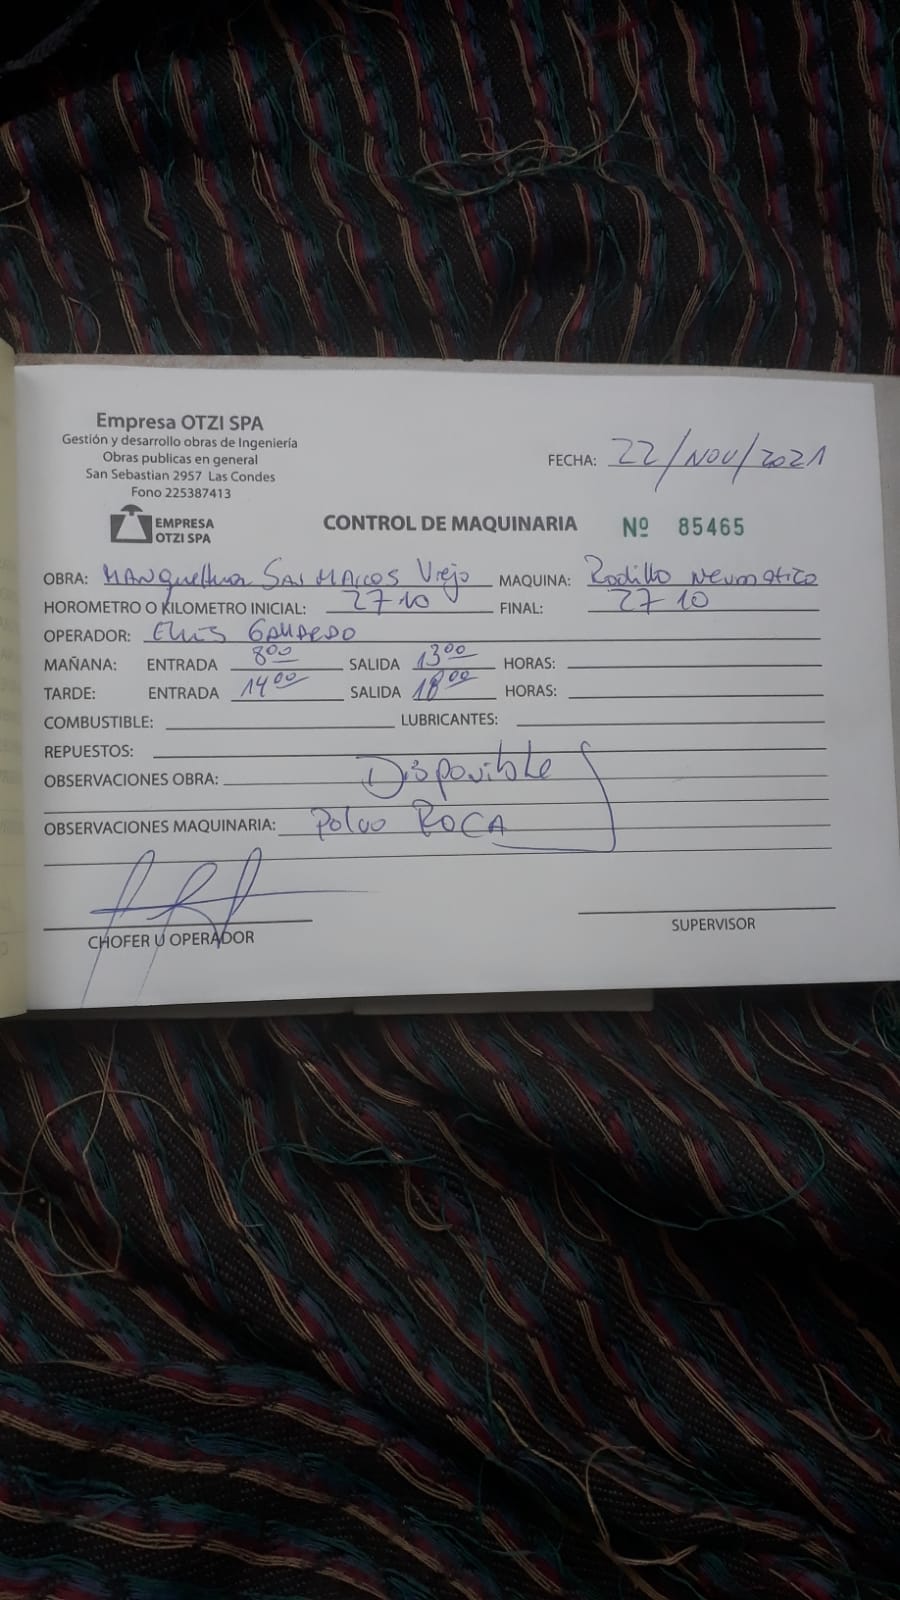 Empresa OTZI SPA
Gestión y desarrollo obras de Ingeniería
Obras publicas en general
San Sebastian 2957 Las Condes
Fono 225387413
EMPRESA
OTZI SPA
FECHA: 22/NOV/2021
CONTROL DE MAQUINARIA Nº 85465
OBRA: San Marcos Viejo MAQUINA: Rodillo Neumatico
HOROMETRO O KILOMETRO INICIAL: 2710 FINAL: 2710
OPERADOR: Gallardo
MAÑANA: ENTRADA 800 SALIDA 1300 HORAS:
TARDE: ENTRADA 1400 SALIDA 1800 HORAS:
COMBUSTIBLE: LUBRICANTES:
REPUESTOS:
OBSERVACIONES OBRA: Disponible
OBSERVACIONES MAQUINARIA: Polvo ROCA
CHOFER U OPERADOR
SUPERVISOR